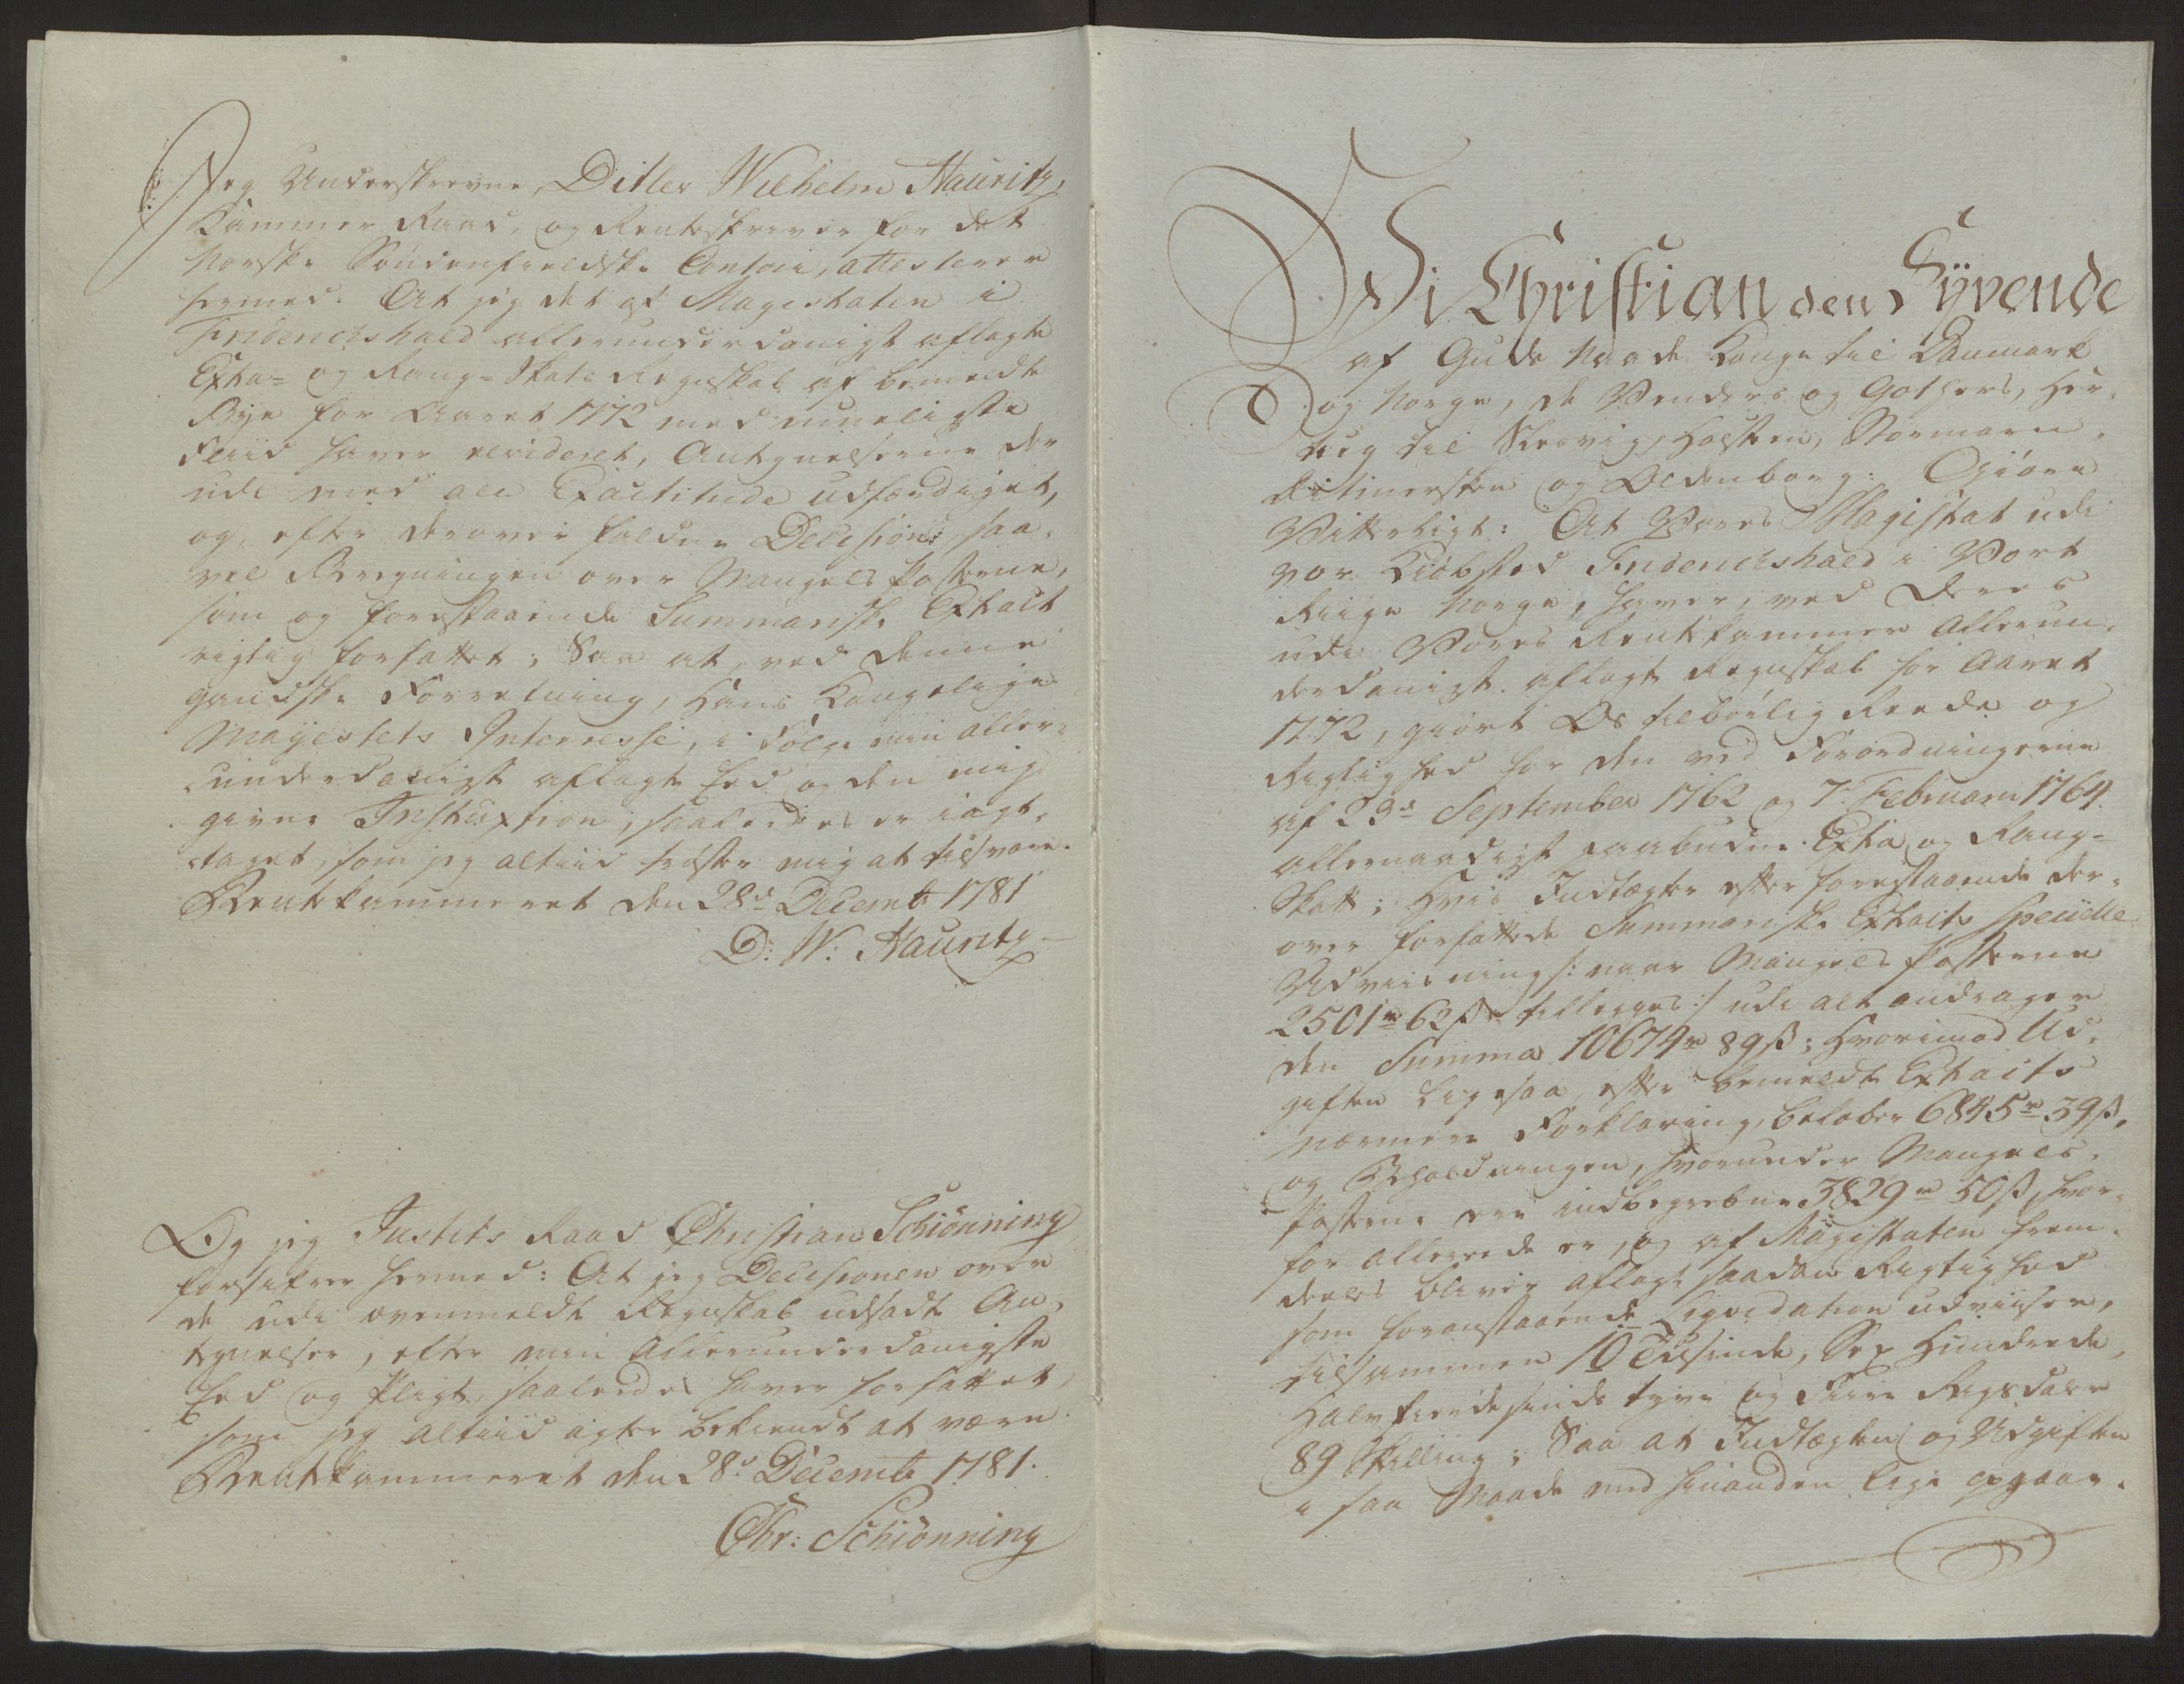 Jeg Underskrevne, Ditlev Wilhelm Hauritz,
Kammer Raad, og Renteskriver for det
Norske Söndenfieldske Contoir, attesterer
hermed: At jeg det af Magistraten i
Friderichshald allerunderdanigst aflagte
Extra- og Rang-Skats Regnskab af bemeldte
Bye for Aaret 1772 med mueligste
Fliid haver revideret, Antegnelserne der
udi med all Exactitude udfærdiget,
og, efter derover faldne Decision, saa-
vel Beregningen over Mangels Posterne,
som og forestaaende Summariske Extract
rigtig forfattet; Saa at, ved denne
gandske Forretning, Hans Kongelige
Mayestets Interesse, i Fölge min aller-
underdanigst aflagte Eed og den mig
givne Instruxtion, saaledes er iagt-
taget, som jeg altiid tröster mig at tilsvare.
Rentekammeret den 28de Decembr 1781
D: W: Hauritz
Og jeg Justits Raad Christian Schiönning
forsikrer hermed: At jeg Decisionen over
de udi ovenmeldte Regnskab udsadte An-
tegnelser, efter min Allerunderdanigste
Eed og Pligt, saaledes haver forfattet,
som jeg altiid agter bekiendt at være.
Rentekammeret den 28de Decembr 1781.
Chr: Schiönning
Vi Christian den Syvende
af Guds Naade Konge til Danmark
og Norge, de Venders og Gothers, Her-
tug til Slesvig, Holsten, Stormarn,
Ditmersken og Oldenborg: Giöre
Vitterligt: At Vores Magistrat udi
vor Kiöbsted Friderichshald i Vort
Riige Norge, haver, ved Deres
udi Vores Rentekammer Allerun-
derdanigst aflagte Regnskab for Aaret
1772, giort Os tilbörlig Reede og
Rigtighed for den ved Forordningerne
af 23de September 1762 og 7de Februarii 1764
allernaadigst paabudne Extra og Rang-
Skatt; Hvis Indtægter efter forestaaende der-
over forfattede Summariske Extracts specielle
Udviisning /: naar Mangels Posterne
2501rd 62s tillegges :/ udi alt andrager
den Summa 10674rd 89s; Hvorimod Ud-
giften ligesaa efter bemeldte Extracts
nærmere Forklaring, beløber 6845rd 39s,
og Beholdningen, hvorunder Mangels-
Posterne ere indbegrebne 3829rd 50s, hvor-
for allerede er, og af Magistraten frem-
deeles bliver aflagt saadan Rigtighed
som foranstaaende Liqvidation udviiser,
tilsammen 10 Tusinde, Sex Hundrede,
Halvfierdesinds tyve og Fiire Rigsdaler
89 Skilling; Saa at Indtægten og Udgiften
i saa Maade med hinanden lige opgaar.